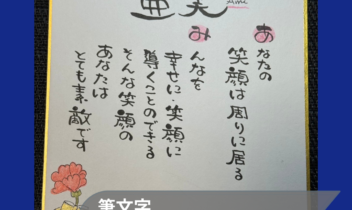 亜美
あなたの
笑顔は周りに居る
みんなを
幸せに・笑顔に
導くことのできる
そんな笑顔の
あなたは
とても素敵です
筆文字